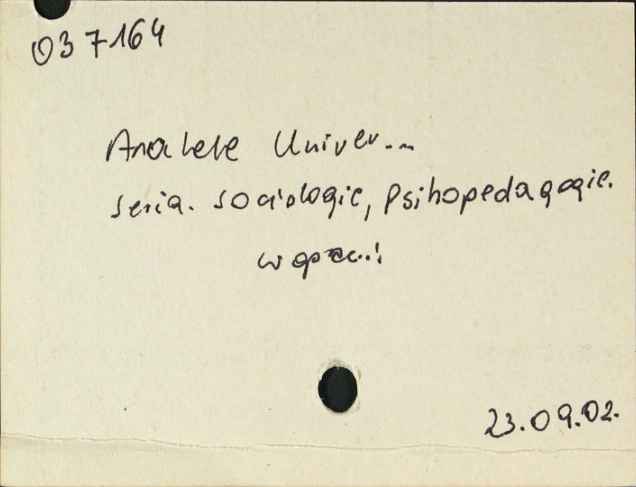 037164
Analele Univer...
seria. sociologie, psihopedagogie.
w oprac.!
23.09.02.